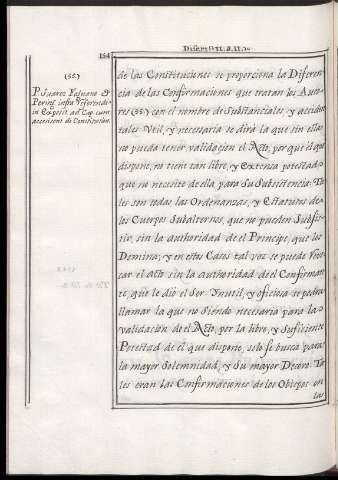 154
(55)
P. Suarez Fagnano et
Pering infra referendi
in Exposit. ad Cap. cum
accessissent de Constitution.
de las Constituciones se proporciona la Diferen
cia de las Confirmaciones que tratan los Auto
res (55) con el nombre de Substanciales, y acciden
tales. Util, y necesaria se dirà la que sin ella
no pueda tener validacion el Acto, por que el que
dispone, no tiene tan libre, y Extensa potestad
que no necesite de ella, para Su Subsistencia: Ta
les son todas las Ordenanzas, y Estatutos de
los Cuerpos Subalternos, que no pueden Subsis
tir, sin la authoridad de el Principe, que los
Domina; y en estos Casos tal vez se puede revo
car el acto sin la authoridad de el Confirman
te, que le diò el Ser. Ynutil, y oficiosa se podra
llamar la que no Siendo necesaria para la
validacion de el Acto, por la libre, y Suficiente
Potestad de el que dispone, solo se busca para
la mayor Solemnidad, y Su mayor Decoro. Ta
les eran las Confirmaciones de los Obispos en
las